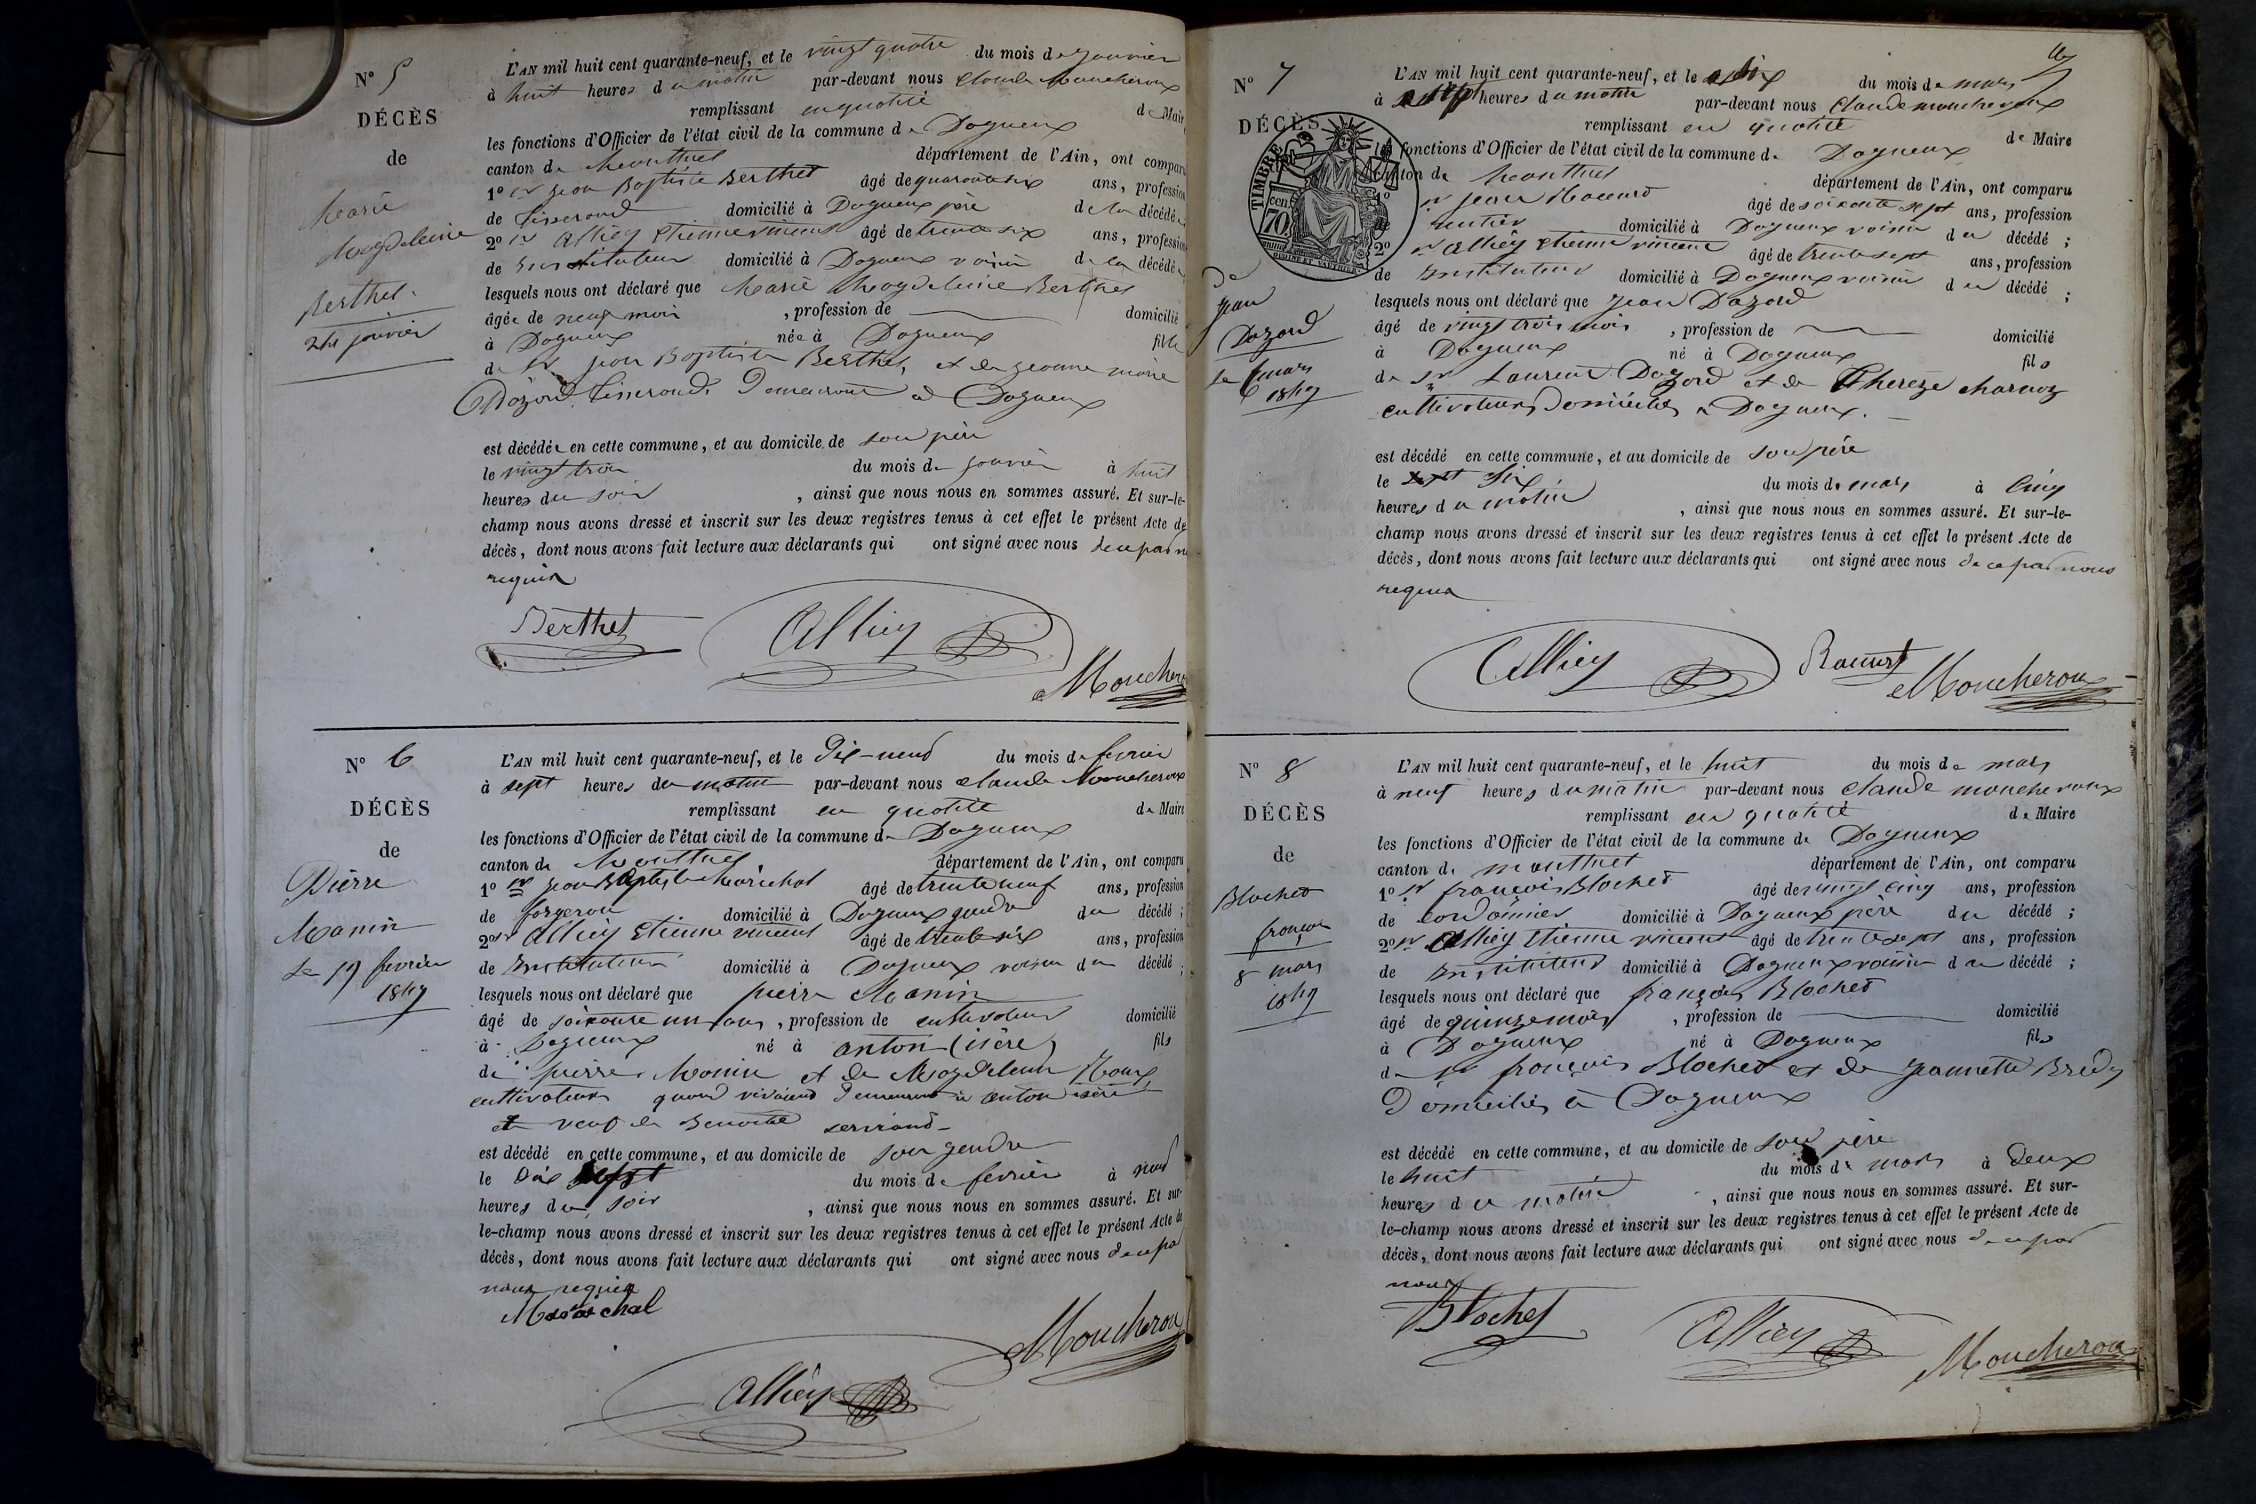 N° 5
DÉCÈS
de
Marie
Magdeleine
Berthet
24 janvier
L'AN mil huit cent quarante-neuf, et le vingt quatre du mois de janvier
à huit heures du matin par-devant nous Claude Moucheroux
remplissant en qualité de Maire
les fonctions d'Officier de l'état civil de la commune de Dagneux
canton de Montluel département de l'Ain, ont comparu
1° Sr Jean Baptiste Berthet âgé de quarante six ans, profession
de tisserand domicilié à Dagneux père de la décédée
2° Sr Alliey Etienne vincent âgé de trente six ans, profession
de Instituteur domicilié à Dagneux voisin de la décédée
lesquels nous ont déclaré que Marie Magdeleine Berthet
âgée de neuf mois , profession de domicilié
à Dagneux née à Dagneux fille
de Sr jean Baptiste Berthet, et de jeanne marie
Dazord tisserands Demeurant à Dagneux
est décédée en cette commune, et au domicile de son père
le vingt trois du mois de janvier à huit
heures du soir , ainsi que nous nous en sommes assuré. Et sur-le-
champ nous avons dressé et inscrit sur les deux registres tenus à cet effet le présent Acte de
décès, dont nous avons fait lecture aux déclarants qui ont signé avec nous de ce par
requis
Berthet Alliey Moucheroux
N° 6
DÉCÈS
de
Pierre
Manin
Le 19 fevrier
1849
L'AN mil huit cent quarante-neuf, et le Dix-neuf du mois de fevrier
à sept heures du matin par-devant nous claude Moucheroux
remplissant en qualité de Maire
les fonctions d'Officier de l'état civil de la commune de Dagneux
canton de Montluel département de l'Ain, ont comparu
1° Sr Jean Baptiste Maréchal âgé de trente neuf ans, profession
de forgeron domicilié à Dagneux gendre du décédé ;
2° Sr Alliey Etienne vincent âgé de trente six ans, profession
de Instituteur domicilié à Dagneux voisin du décédé ;
lesquels nous ont déclaré que pierre Manin
âgé de soixante un ans , profession de cultivateur domicilié
à Dagneux né à anton (isère) fils
de pierre Manin et de Magdeleine Roux
cultivateurs quand vivaient Demeurant à anton isère
et veuf de Benoite
est décédé en cette commune, et au domicile de son gendre
le Dix sept du mois de fevrier à neuf
heures du soir , ainsi que nous nous en sommes assuré. Et sur-
le-champ nous avons dressé et inscrit sur les deux registres tenus à cet effet le présent Acte de
décès, dont nous avons fait lecture aux déclarants qui ont signé avec nous de ce par
nous requis
Maréchal
Moucheroux
Alliey
N° 7
DÉCÈS
de
jean
Dazord
Le 6 mars
1849
TIMBRE
70 cen.
L'AN mil huit cent quarante-neuf, et le six du mois de mars
à sept heures du matin par-devant nous Claude moucheroux
remplissant en qualité de Maire
les fonctions d'Officier de l'état civil de la commune de Dagneux
canton de Montluel département de l'Ain, ont comparu
1° Sr jean âgé de soixante sept ans, profession
de rentier domicilié à Dagneux voisin du décédé ;
2° Sr Alliey Etienne vincent âgé de trente sept ans, profession
de Instituteur domicilié à Dagneux voisin du décédé ;
lesquels nous ont déclaré que jean Dazord
âgé de vingt trois mois , profession de domicilié
à Dagneux né à Dagneux fils
de Sr Laurent Dazord et de Thereze charnoz
cultivateurs Domiciliés à Dagneux.
est décédé en cette commune, et au domicile de son père
le six du mois de mars à Cinq
heures du matin , ainsi que nous nous en sommes assuré. Et sur-le-
champ nous avons dressé et inscrit sur les deux registres tenus à cet effet le présent Acte de
décès, dont nous avons fait lecture aux déclarants qui ont signé avec nous de ce par nous
requis
Alliey Moucheroux
N° 8
DÉCÈS
de
Blochet
françois
8 mars
1849
L'AN mil huit cent quarante-neuf, et le huit du mois de mars
à neuf heures du matin par-devant nous Claude moucheroux
remplissant en qualité de Maire
les fonctions d'Officier de l'état civil de la commune de Dagneux
canton de montluel département de l'Ain, ont comparu
1° Sr françois Blochet âgé de vingt cinq ans, profession
de cordonnier domicilié à Dagneux père du décédé ;
2° Sr Alliey Etienne vincent âgé de trente sept ans, profession
de Instituteur domicilié à Dagneux voisin du décédé ;
lesquels nous ont déclaré que françois Blochet
âgé de quinze mois , profession de domicilié
à Dagneux né à Dagneux fils
de Sr françois Blochet et de jeannette
Domiciliés à Dagneux
est décédé en cette commune, et au domicile de son père
le huit du mois de mars à Deux
heures du matin , ainsi que nous nous en sommes assuré. Et sur-
le-champ nous avons dressé et inscrit sur les deux registres tenus à cet effet le présent Acte de
décès, dont nous avons fait lecture aux déclarants qui ont signé avec nous de ce par
nous
Blochet Alliey Moucheroux